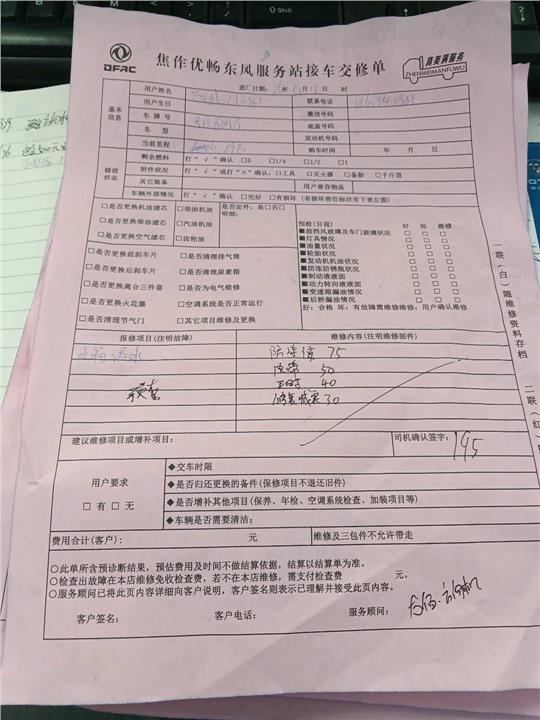 DFAC
焦作优畅东风服务站接车交修单
真美满服务
ZHENMEIMANFUWU
用户姓名 进厂日期: 年 月 日 时
基本信息
用户生日 联系电话
车牌号 微信号码
车型 底盘号码
当前里程 发动机号码
购车时间 年 月 日
修前状态
剩余燃料 打“√”确认 □0 □1/4 □1/2 □1
附件状况 打“√”或打“×”确认: 口工具 □灭火器 □备胎 □千斤顶
其它装备 用户寄存物品
车辆外部情况 打“√”确认 □完好 □有损坏(有损坏部位标注在下表左图)
□是否更换机油滤芯 □柴油机油 是否定件:是□否□
□是否更换柴油滤芯 □汽油机油 明细:
□是否更换空气滤芯 □齿轮油
□是否更换前刹车片 □是否清理排气筒
□是否更换后刹车片 □是否清理尿素箱
□是否更换离合三件套 □是否为电气维修
□是否更换火花塞 □空调系统是否正常运行
□是否清理节气门 □其它项目维修及更换
预检(目视) 好 坏 维修
■前挡风玻璃及车门玻璃状况 □ □ □
■灯具情况 □ □ □
■油量状况 □ □ □
■轮胎状况 □ □ □
■发动机机油状况 □ □ □
■防冻防锈瓶状况 □ □ □
■制动液液面 □ □ □
■动力转向液液面 □ □ □
■变速箱漏油情况 □ □ □
■后桥漏油情况 □ □ □
好:合格 坏:有故障需维修维修:用户确认维修
报修项目(注明故障) 维修内容(注明维修部件)
防冻液 75
皮带 50
正时 40
30
建议维修项目或增补项目: 司机确认签字: 195
用户要求
□有 □无
◆交车时限
◆是否归还更换的备件(保修项目不退还旧件)
◆是否增补其他项目(保养、年检、空调系统检查、加装项目等)
◆车辆是否需要清洁:
费用合计(客户): 元 维修及三包件不允许带走
○此单所含预诊断结果,预估费用及时间不做结算依据,结算以结算单为准。
○检查出故障在本店维修免收检查费,若不在本店维修,需支付检查费 元。
○服务顾问已将此页内容详细向客户说明,客户签名则表示已理解并接受此页内容。
客户签名: 客户电话: 服务顾问:
一联(白)随维修资料存档
二联(红)
Shift